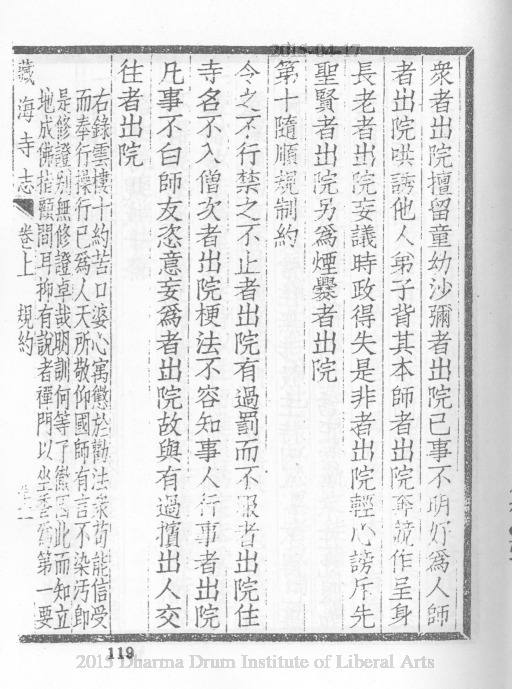 衆者出院擅留童幼沙彌者出院已事不明好爲人師
者出院哄誘他人弟子背其本師者出院
作呈身
長老者出院妄議時政得失是非者出院輕心謗斥先
聖賢者出院另爲煙爨者出院
第十隨順規制約
令之不行禁之不止者出院有過罰而不服者出院住
寺名不入僧次者出院梗法不容知事人行事者出院
凡事不白師友恣意妄爲者出院故與有過擯出人交
往者出院
右錄雲棲十約苦口婆心寓懲於勸法衆苟能信受
而奉行操行已爲人天所敬仰國師有言不染汚即
是修證別無修證卓哉明訓何等了徹因此而知立
地成佛指顧間耳抑有說者禪門以坐香爲第一要
藏海寺志 卷上 規約
119
2015-04-17
2013 Dharma Drum Institute of Liberal Arts